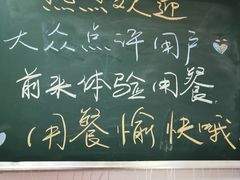 欢迎
大众点评用户
前来体验用餐.
用餐愉快哦